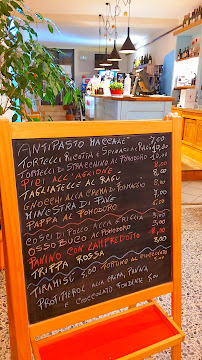 ANTIPASTO MACCARÈ 7,00
TORTELLI RICOTTA E SPINACI AL RAGÙ 10,00
TORTELLI DI STRACCHINO AL POMODORO 10,00
PICI ALL'AGLIONE 8,00
TAGLIATELLE AL RAGÙ 8,00
GNOCCHI ALLA CREMA DI FORMAGGIO
MINESTRA DI PANE
PAPPA AL POMODORO
COSCI DI POLLO ALLA GRIGLIA
OSSOBUCO AL POMODORO
PANINO CON LAMPREDOTTO
TRIPPA ROSSA
TIRAMISÙ 5,00 TORTINO AL CIOCCOLATO
PROFITEROL ALLA CREMA, PANNA
E CIOCCOLATO FONDENTE 5,00